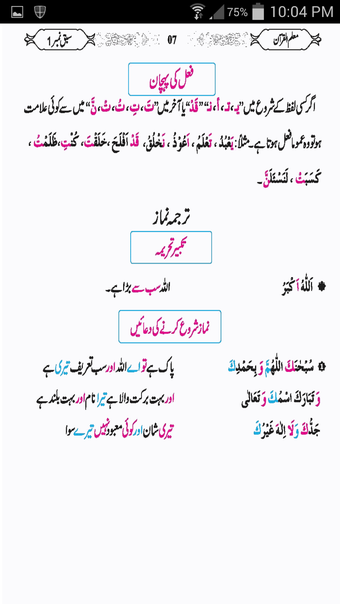 75% 10:04 PM
معلم القرآن 07 سبق نمبر 1
فعل کی پہچان
اگر کسی لفظ کے شروع میں ”یـ، تـ، أ، نـ“ ”قَدْ“ یا آخر میں ”تَ، تِ، تُ، تْ، نَّ“ میں سے کوئی علامت
ہو تو وہ عموما فعل ہوتا ہے۔ مثلاً: يَعْبُدُ، تَعْلَمُ، اَعُوْذُ، نَخْلُقُ، قَدْ اَفْلَحَ، خَلَقْتَ، كُنْتِ، ظَلَمْتُ،
كَسَبَتْ، لَنَسْئَلَنَّ۔
ترجمہ نماز
تکبیر تحریمہ
اَللّٰهُ اَكْبَرُ اللہ سب سے بڑا ہے۔
نماز شروع کرنے کی دعائیں
سُبْحٰنَكَ اللّٰهُمَّ وَ بِحَمْدِكَ پاک ہے تو اے اللہ اور سب تعریف تیری ہے
وَ تَبَارَكَ اسْمُكَ وَ تَعَالٰى اور بہت برکت والا ہے تیرا نام اور بہت بلند ہے
جَدُّكَ وَ لَا اِلٰهَ غَيْرُكَ تیری شان اور کوئی معبود نہیں تیرے سوا